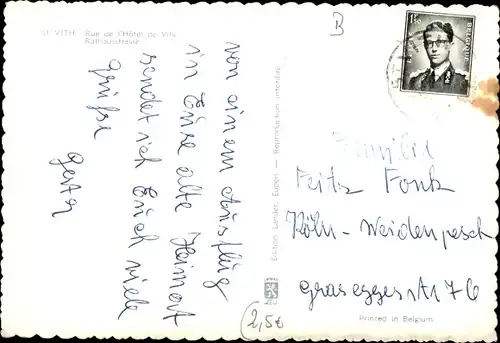 ST. VITH Rue de l'Hôtel de Ville
Rathausstrasse
B
1F50
BELGIQUE
von einem Ausflug
in Eure alte Heimat
sendet ich Euch viele
Grüße
Familie
Fritz Fonk
Köln-Weidenpesch
Grasseggerstr 176
Edition Lander, Eupen — Reproduction interdite
(2,50
Printed in Belgium